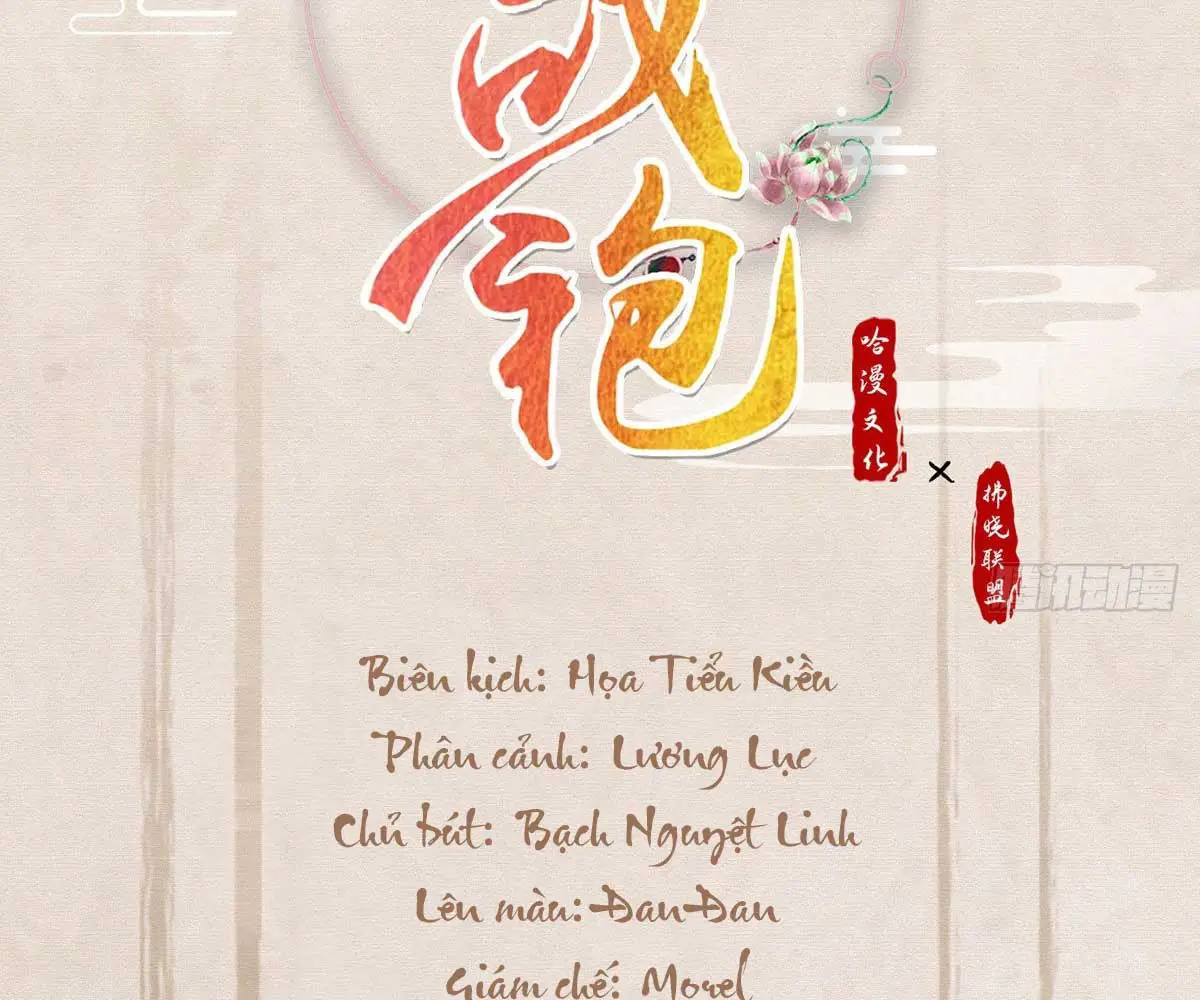 袍
哈漫文化
×
拂晓联盟
腾讯动漫
Biên kịch: Họa Tiểu Kiều
Phân cảnh: Lương Lục
Chủ bút: Bạch Nguyệt Linh
Lên màu: Đan Đan
Giám chế: Morel